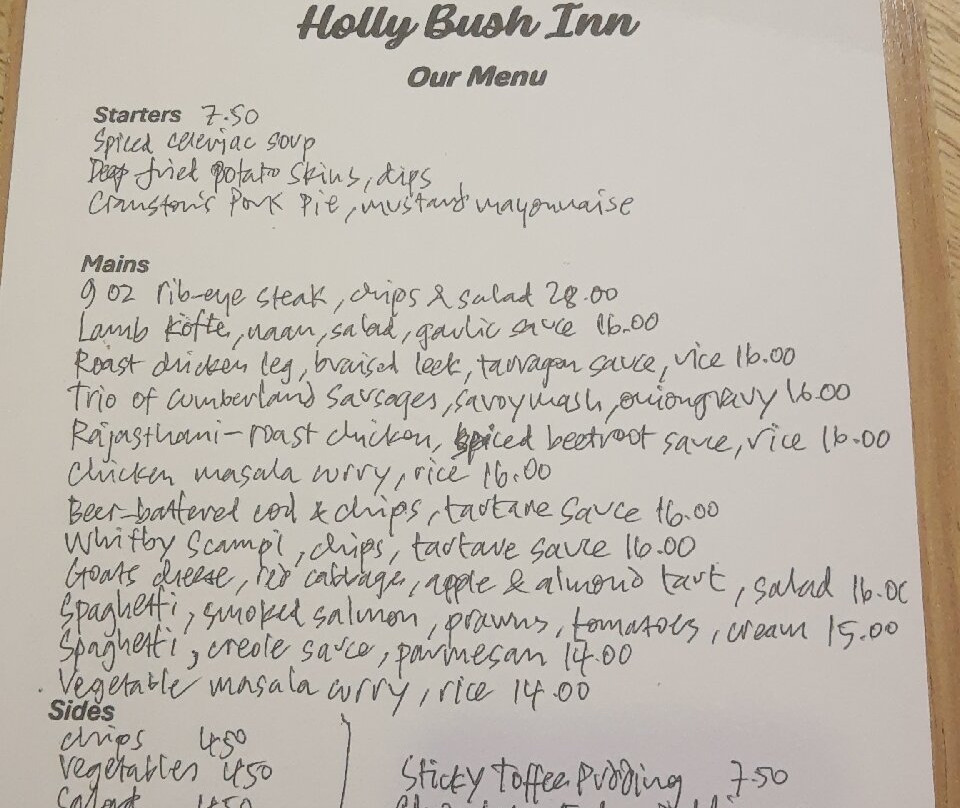 Holly Bush Inn
Our Menu
Starters 7.50
Spiced celeriac soup
Deep fried potato skins, dips
Cranston's Pork Pie, mustard mayonnaise
Mains
9 oz rib-eye steak, chips & salad 28.00
Lamb kofte, naan, salad, garlic sauce 16.00
Roast chicken leg, braised leek, tarragon sauce, rice 16.00
Trio of cumberland sausages, savoy mash, onion gravy 16.00
Rajasthani-roast chicken, spiced beetroot sauce, rice 16.00
Chicken masala curry, rice 16.00
Beer-battered cod & chips, tartare sauce 16.00
Whitby Scampi, chips, tartare sauce 16.00
Goats cheese, red cabbage, apple & almond tart, salad 16.00
Spaghetti, smoked salmon, prawns, tomatoes, cream 15.00
Spaghetti, creole sauce, parmesan 14.00
Vegetable masala curry, rice 14.00
Sides
chips 450
vegetables 450
Salad 450
Sticky Toffee Pudding 7.50